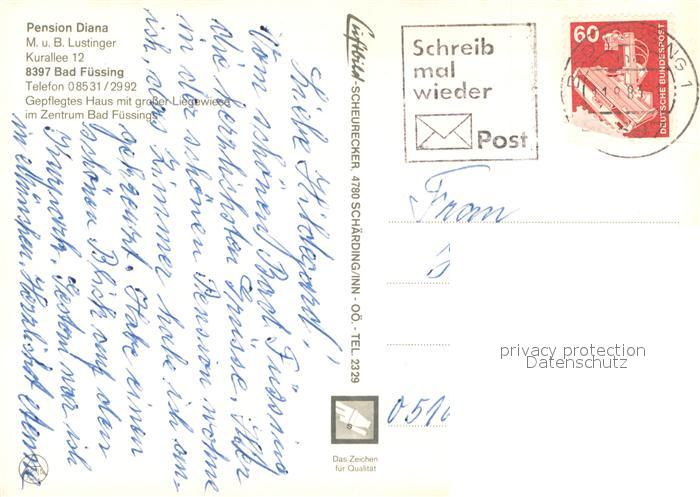 Pension Diana
M. u. B. Lustinger
Kurallee 12
8397 Bad Füssing
Telefon 08531/2992
Gepflegtes Haus mit großer Liegewiese
im Zentrum Bad Füssings
Liebe Hildegard!
Vom schönen Bad Füssing
die herzlichsten Grüsse. Hier
in der schönen Pension wohne
ich, das Zimmer habe ich an-
gekreuzt. Habe einen
schönen Blick auf den
Kurpark. Gestern war ich
in München. Herzlichst
Luftbild-SCHEURECKER 4780 SCHÄRDING/INN - OÖ. - TEL. 2329
Schreib
mal
wieder
Post
60
DEUTSCHE BUNDESPOST
Frau
privacy protection
Datenschutz
S
Das Zeichen
für Qualität